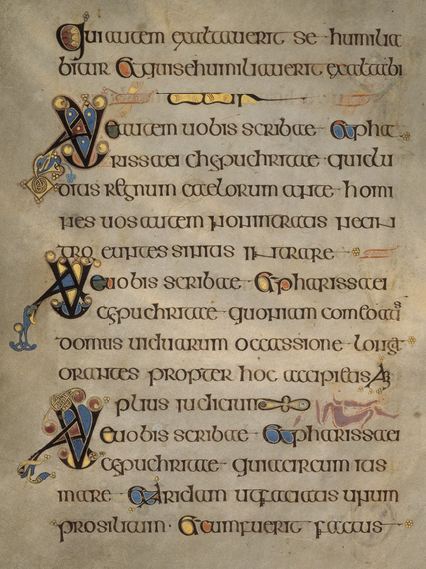 Qui autem exaltauerit se humilia
bitur & qui se humiliauerit exaltabi
tur
Uae autem uobis scribae & pha
rissaei chypuchritae qui clu
ditis regnum caelorum ante homi
nes uos autem non intratis nec in
tro euntes sinitis intrare
Uae uobis scribae & pharissaei
chypuchritae quoniam comeditis
domus uiduarum occassione longa
orantes propter hoc accipietis am
plius iudicium
Uae uobis scribae & pharissaei
chypuchritae quia circum itis
mare & aridam ut faciatis unum
prosilitum & cum fuerit factus